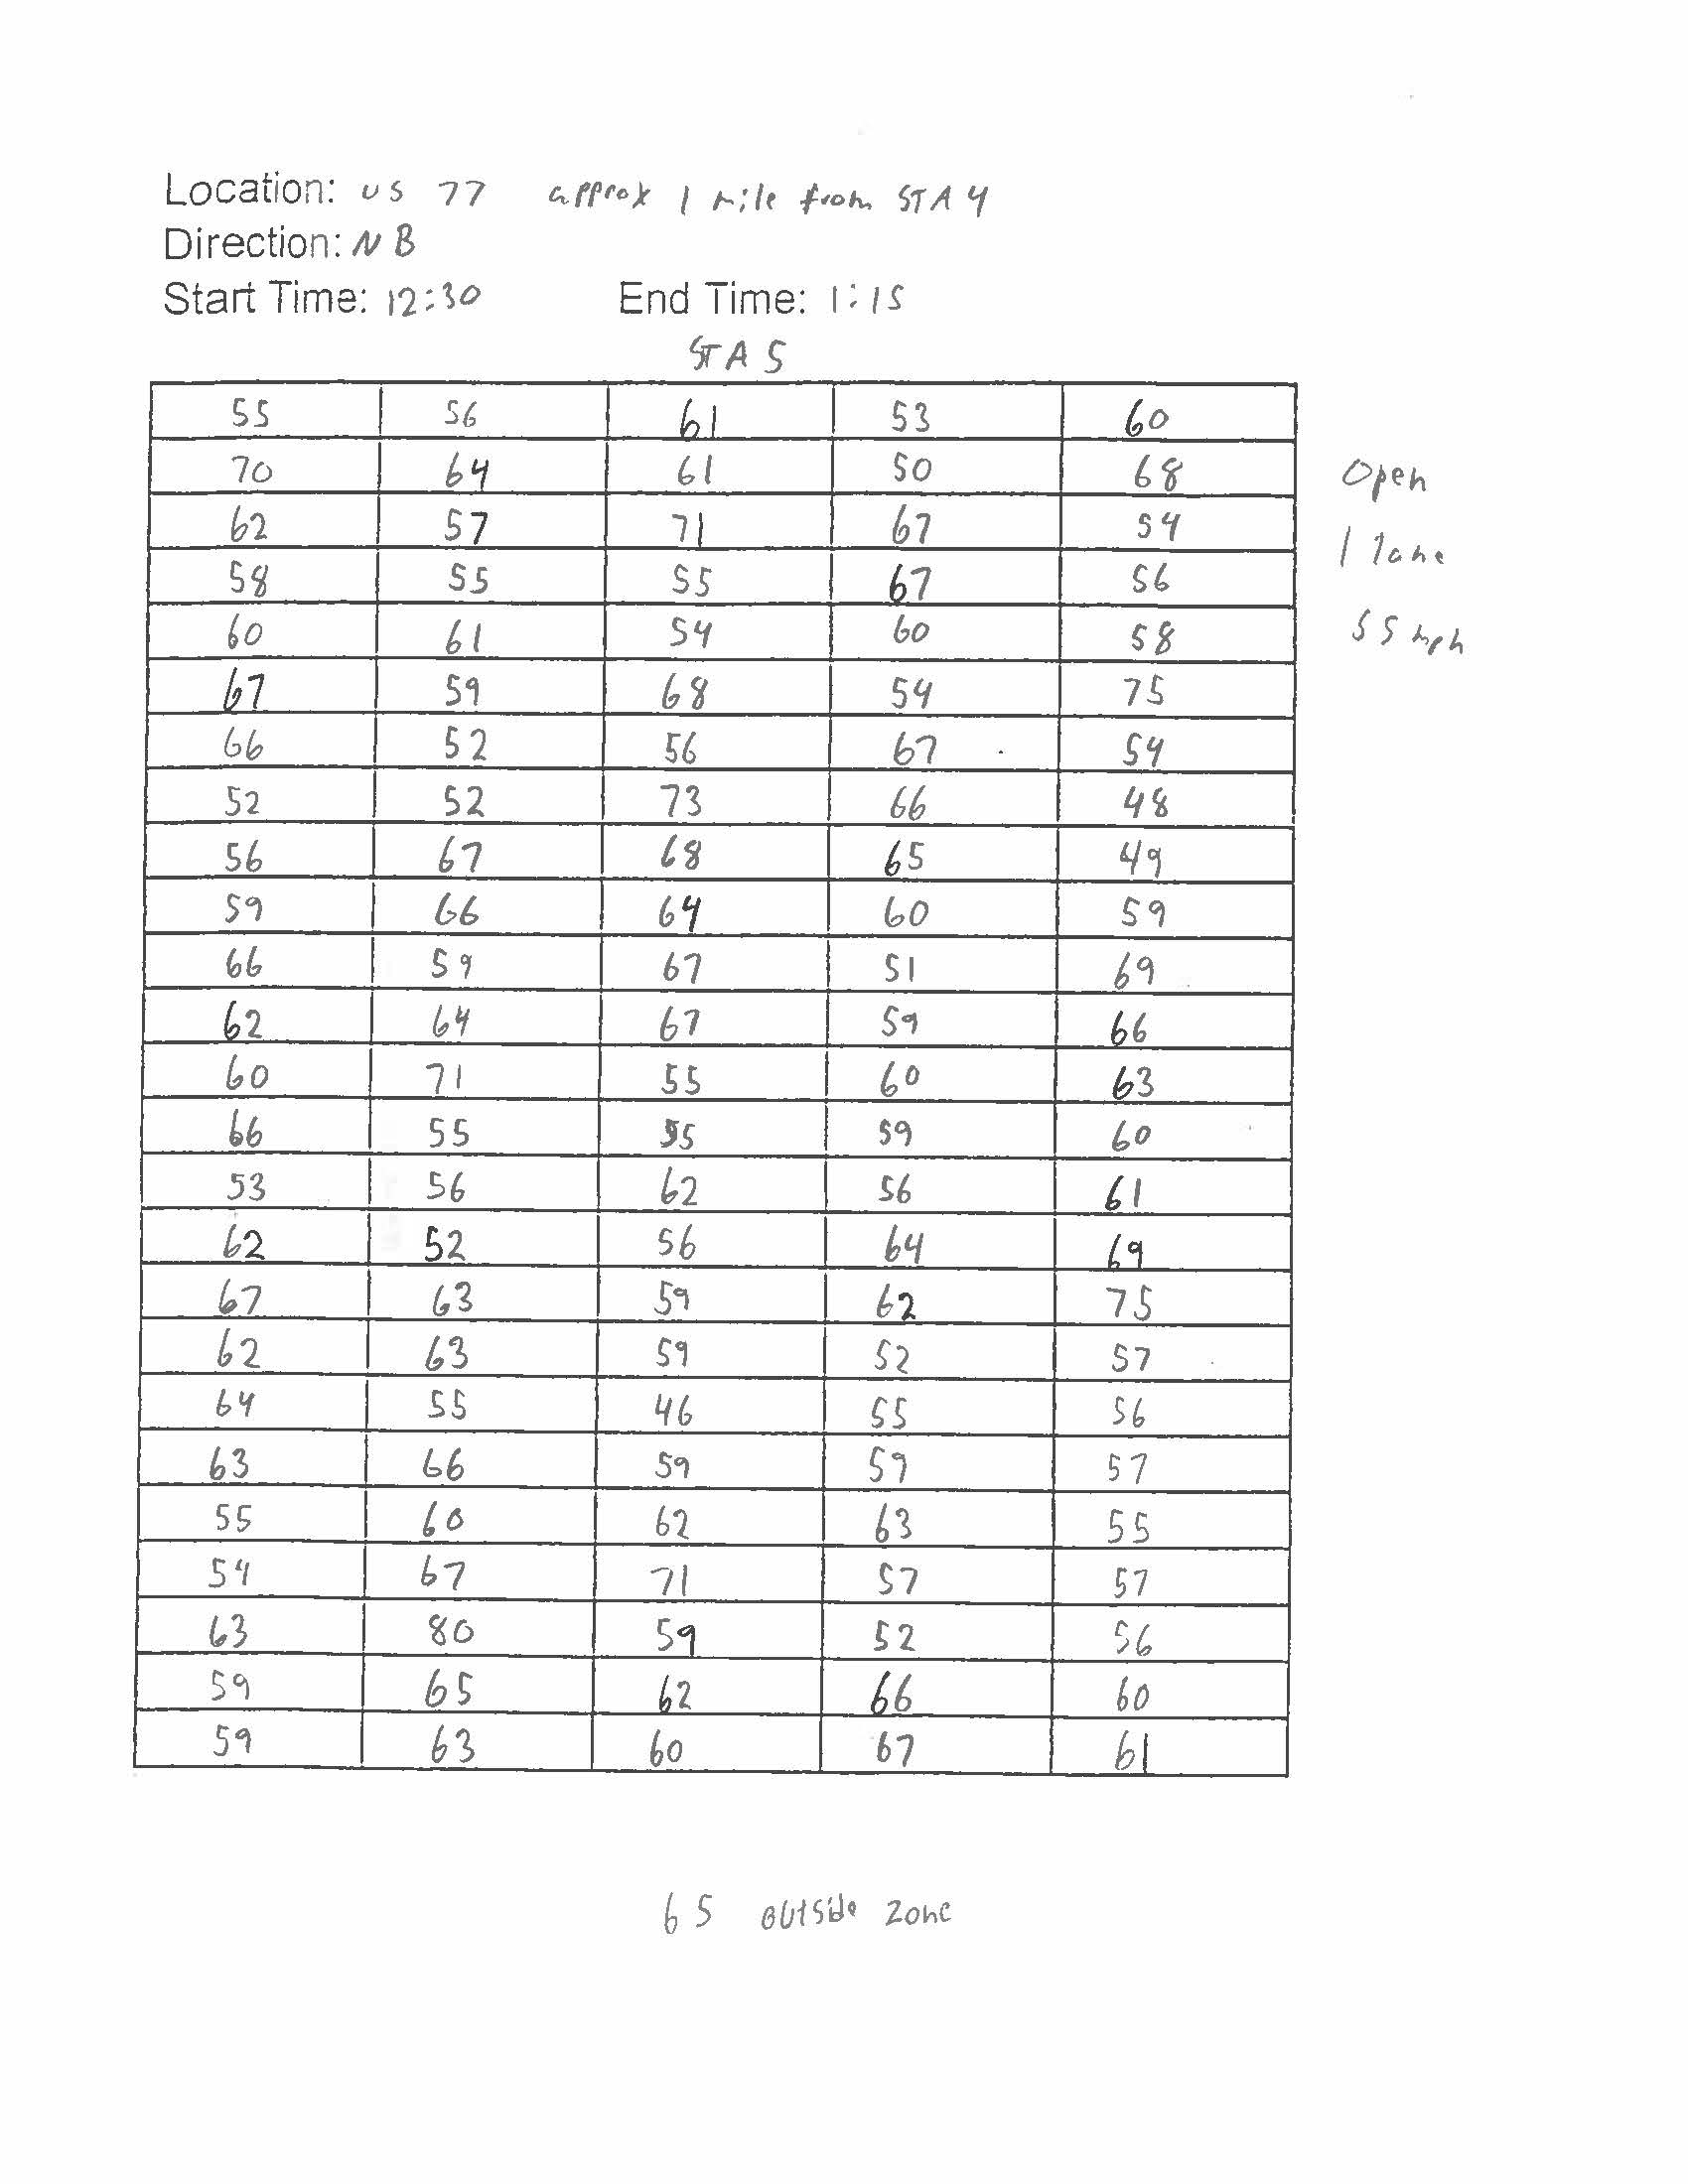 Location: US 77 approx 1 mile from STA 4
Direction: NB
Start Time: 12:30 End Time: 1:15
STA 5
55 56 61 53 60
70 64 61 50 68
62 57 71 67 54
58 55 55 67 56
60 61 54 60 58
67 59 68 54 75
66 52 56 67 54
52 52 73 66 48
56 67 68 65 49
59 66 64 60 59
66 59 67 51 69
62 64 67 59 66
60 71 55 60 63
66 55 55 59 60
53 56 62 56 61
62 52 56 64 69
67 63 59 62 75
62 63 59 52 57
64 55 46 55 56
63 66 59 59 57
55 60 62 63 55
54 67 71 57 57
63 80 59 52 56
59 65 62 66 60
59 63 60 67 61
Open
1 lane
55 mph
65 outside zone